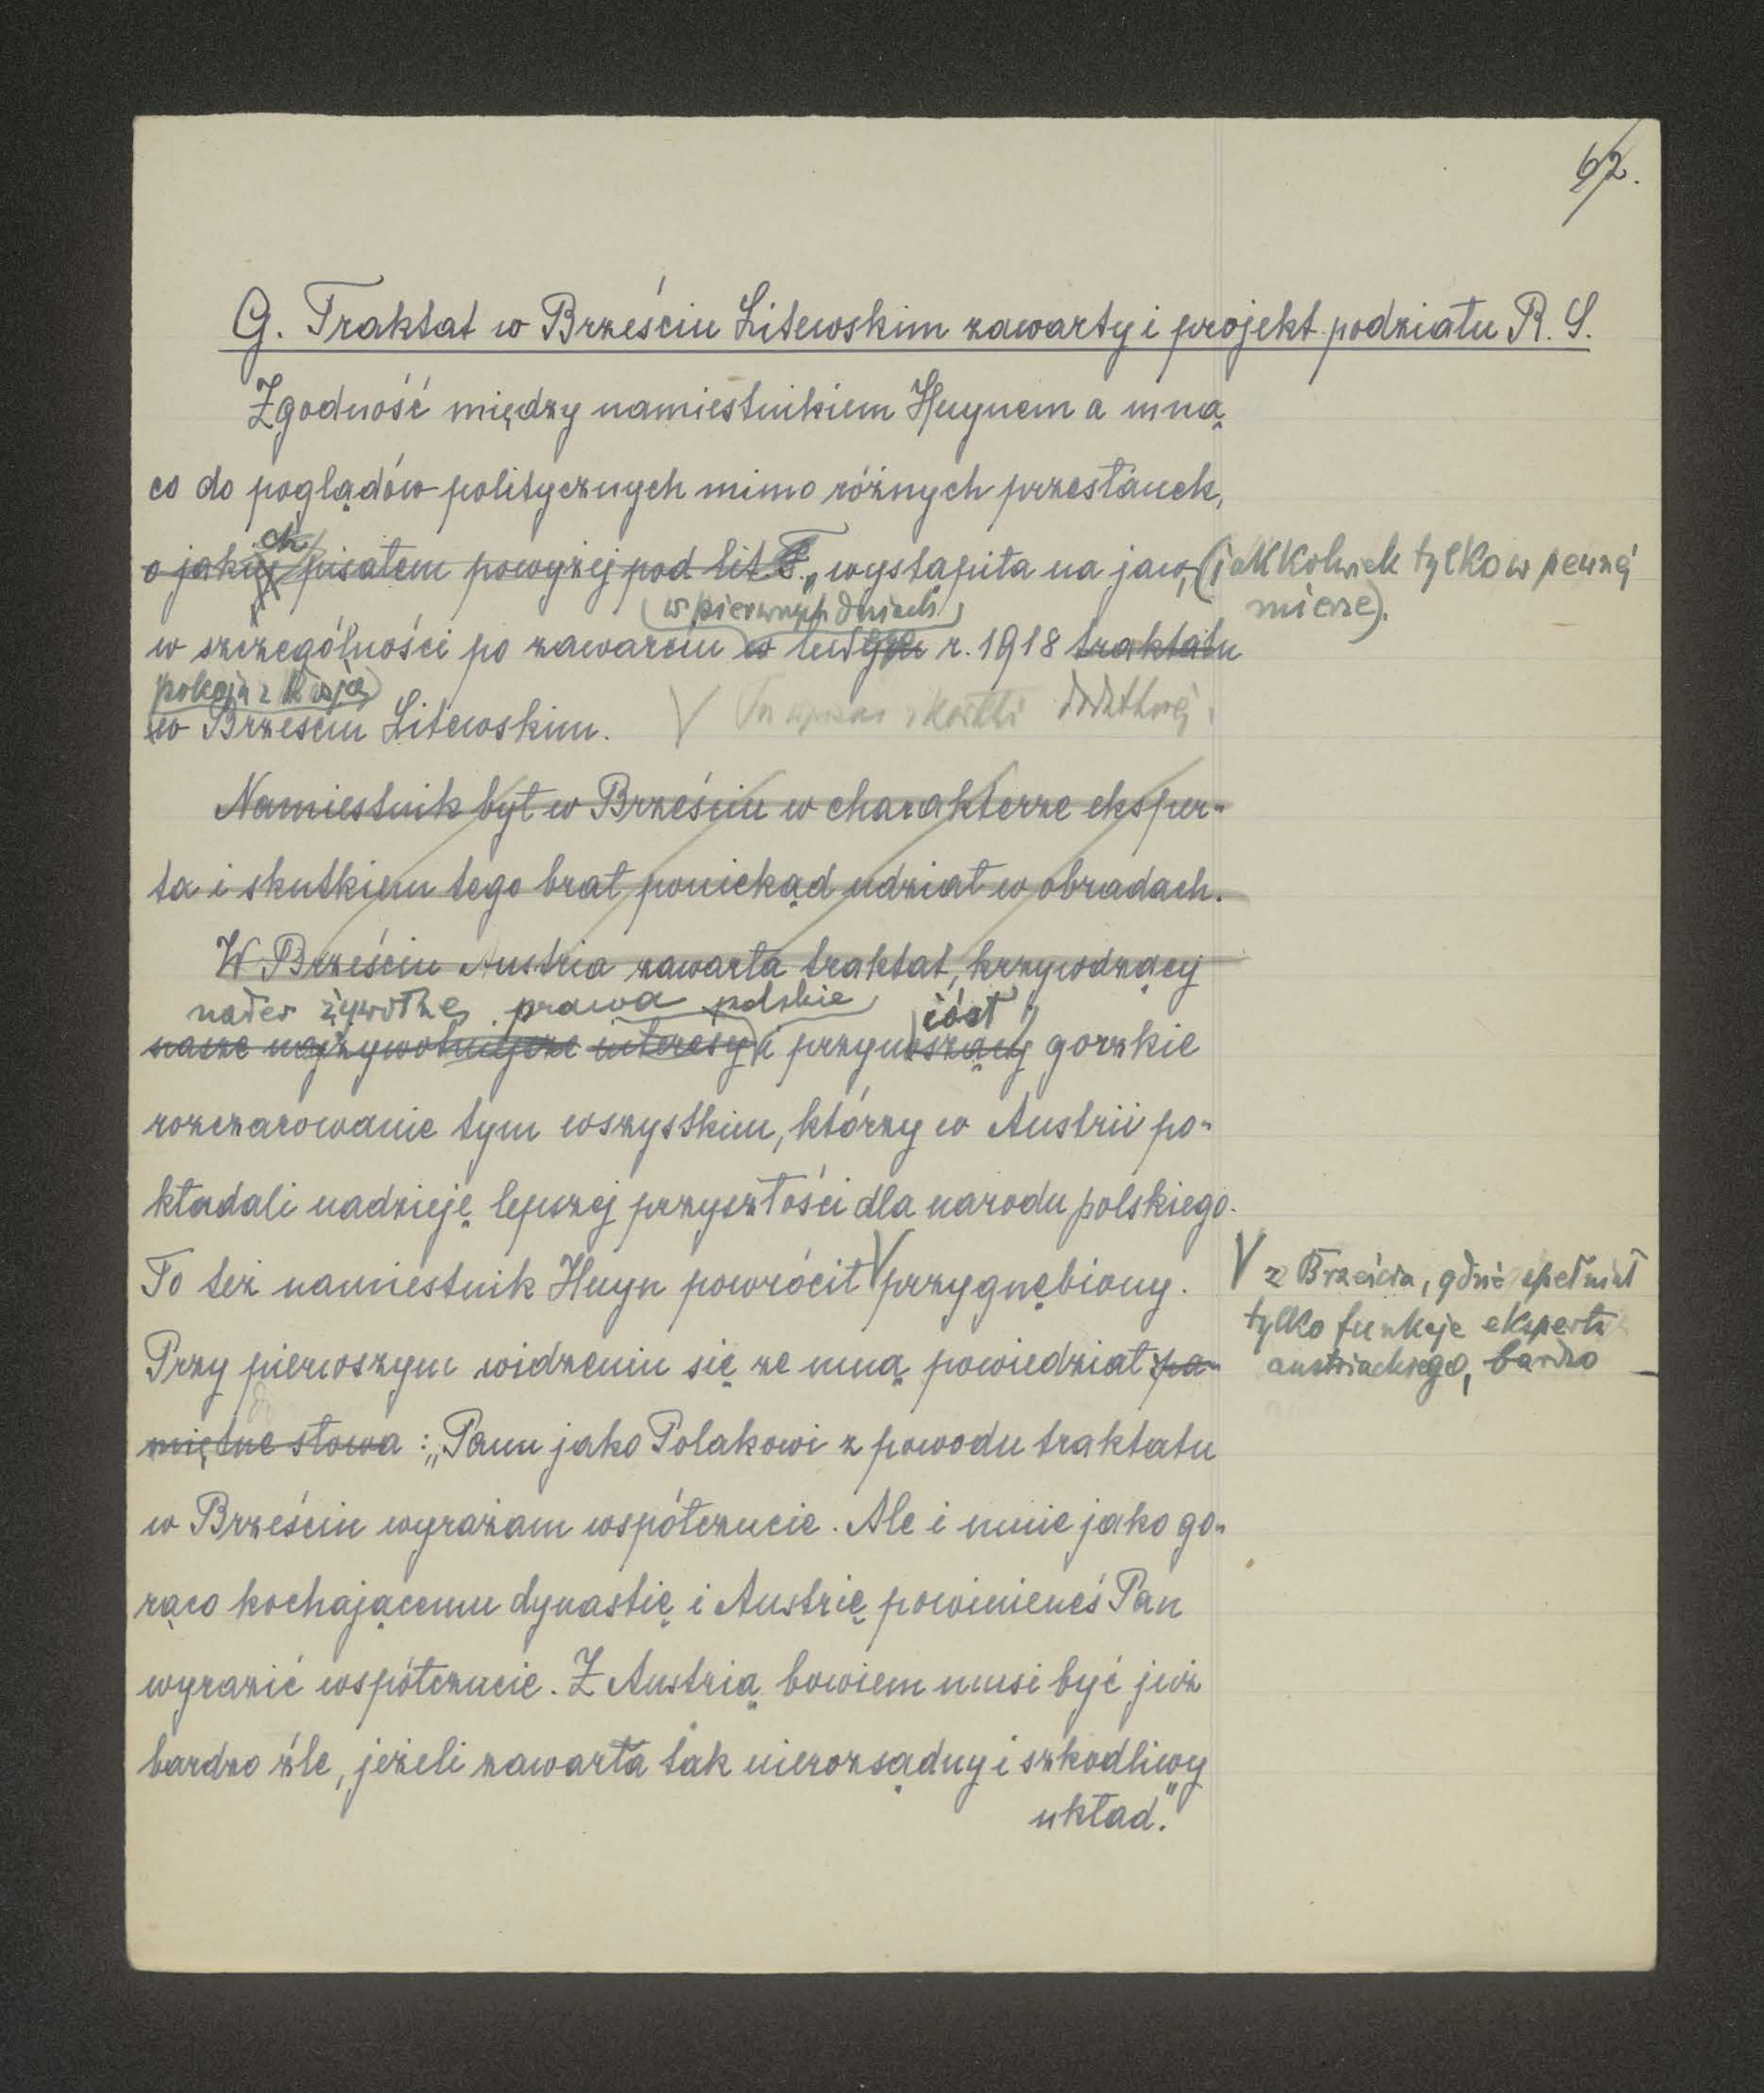 62.
G. Traktat w Brześciu Litewskim zawarty i projekt podziału R. S.
Zgodność między namiestnikiem Huynem a mną
co do poglądów politycznych mimo różnych przesłanek,
ch
o jakiej pisałem powyżej pod lit. F., wystąpiła na jaw, (jakkolwiek tylko w pewnej
mierze).
w pierwszych dniach
w szczególności po zawarciu w lutym r. 1918 traktatu
pokoju z Rosją
w Brześciu Litewskim.
V Tu wpisać z kartki dodatkowej.
Namiestnik był w Brześciu w charakterze eksper-
ta i skutkiem tego brał poniekąd udział w obradach.
W Brześciu Austria zawarła traktat, krzywdzący
nader żywotne prawa polskie iósł
nasze najżywotniejsze interesy i przynoszący gorzkie
rozczarowanie tym wszystkim, którzy w Austrii po-
kładali nadzieję lepszej przyszłości dla narodu polskiego.
To też namiestnik Huyn powrócił V przygnębiony.
V z Brześcia, gdzie spełniał
tylko funkcje eksperta
austriackiego, bardzo
Przy pierwszym widzeniu się ze mną powiedział pa-
miętne słowa: „Panu jako Polakowi z powodu traktatu
w Brześciu wyrażam współczucie. Ale i mnie jako go-
rąco kochającemu dynastię i Austrię powinieneś Pan
wyrazić współczucie. Z Austrią bowiem musi być już
bardzo źle, jeżeli zawarła tak nierozsądny i szkodliwy
układ."